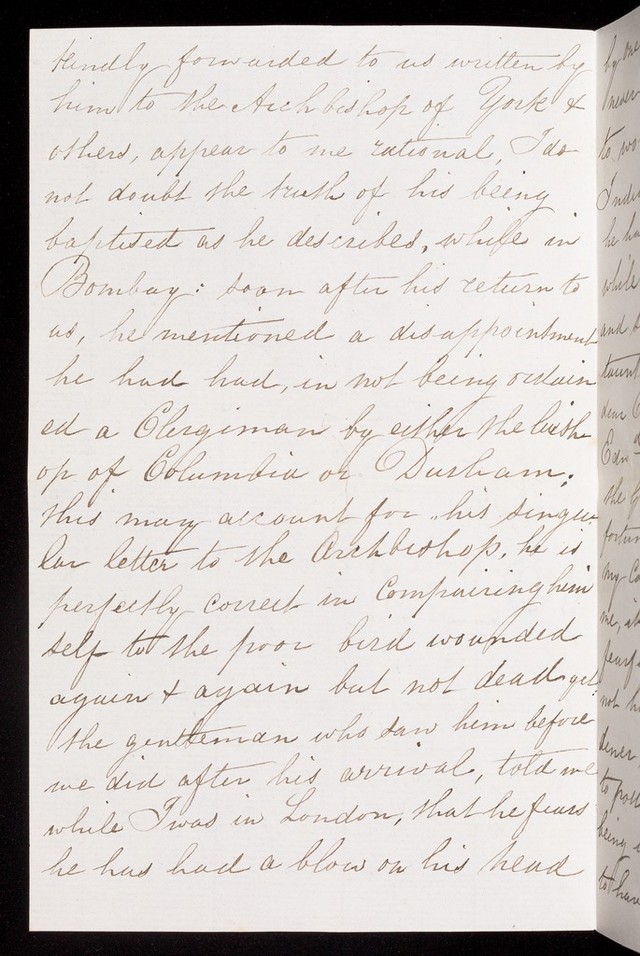 kindly forwarded to us written by
him to the Archbishop of York &
others, appear to me rational, I do
not doubt the truth of his being
baptised as he describes, while in
Bombay: soon after his return to
us, he mentioned a disappointment
he had had, in not being ordain
ed a Clergiman by either the bish
op of Columbia or Durham;
this may account for his singu
lar letter to the Archbishop. he is
perfectly correct in compairing him
self to the poor bird wounded
again & again but not dead yet.
the gentleman who saw him before
we did after his arrival, told me
while I was in London, that he fears
he has had a blow on his head
by
never
to
he
while
and
taunt
dear
Edw
the
my
me,
not
to
being
to have